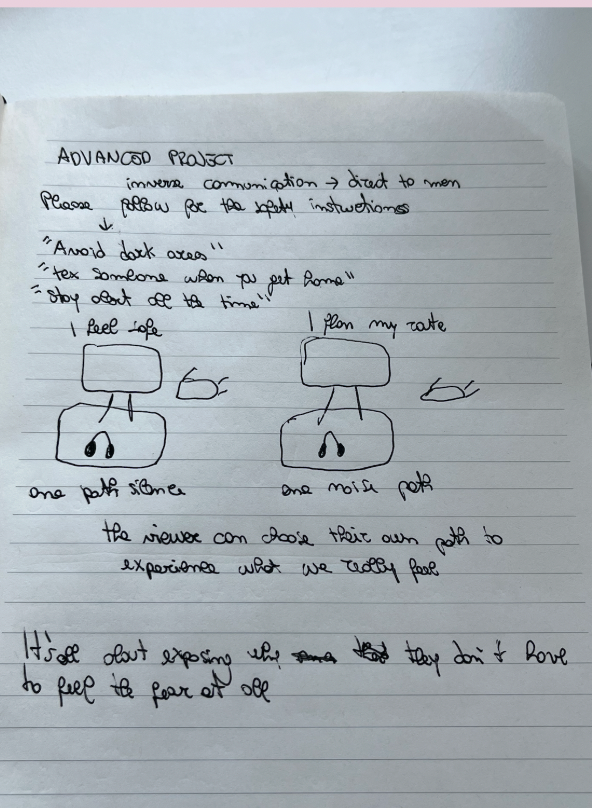 ADVANCED PROJECT
inverse communication → direct to men
Please follow for the safety instructions
↓
"Avoid dark areas"
"tex someone when you get home"
"stay alert all the time"
I feel safe
I plan my rate
one path silence
one noise path
the viewer can choose their own path to
experience what we really feel
It's all about exposing why they don't have
to feel the fear at all